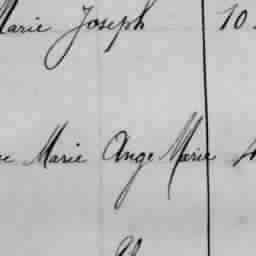 Marie Joseph 10
Marie Ange Marie